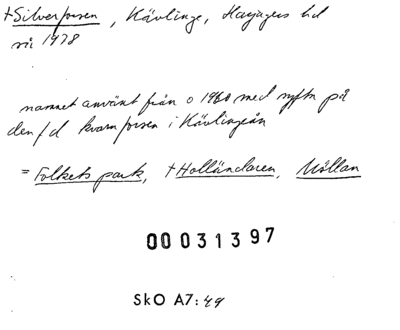 †Silverforsen, Kävlinge, Harjagers hd
1978
namnet använt från o 1960 med syftn på
den f d kvarnforsen i Kävlingeån
= Folkets park, †Holländaren, Möllan
0003 1 3 97
SkO A7:49